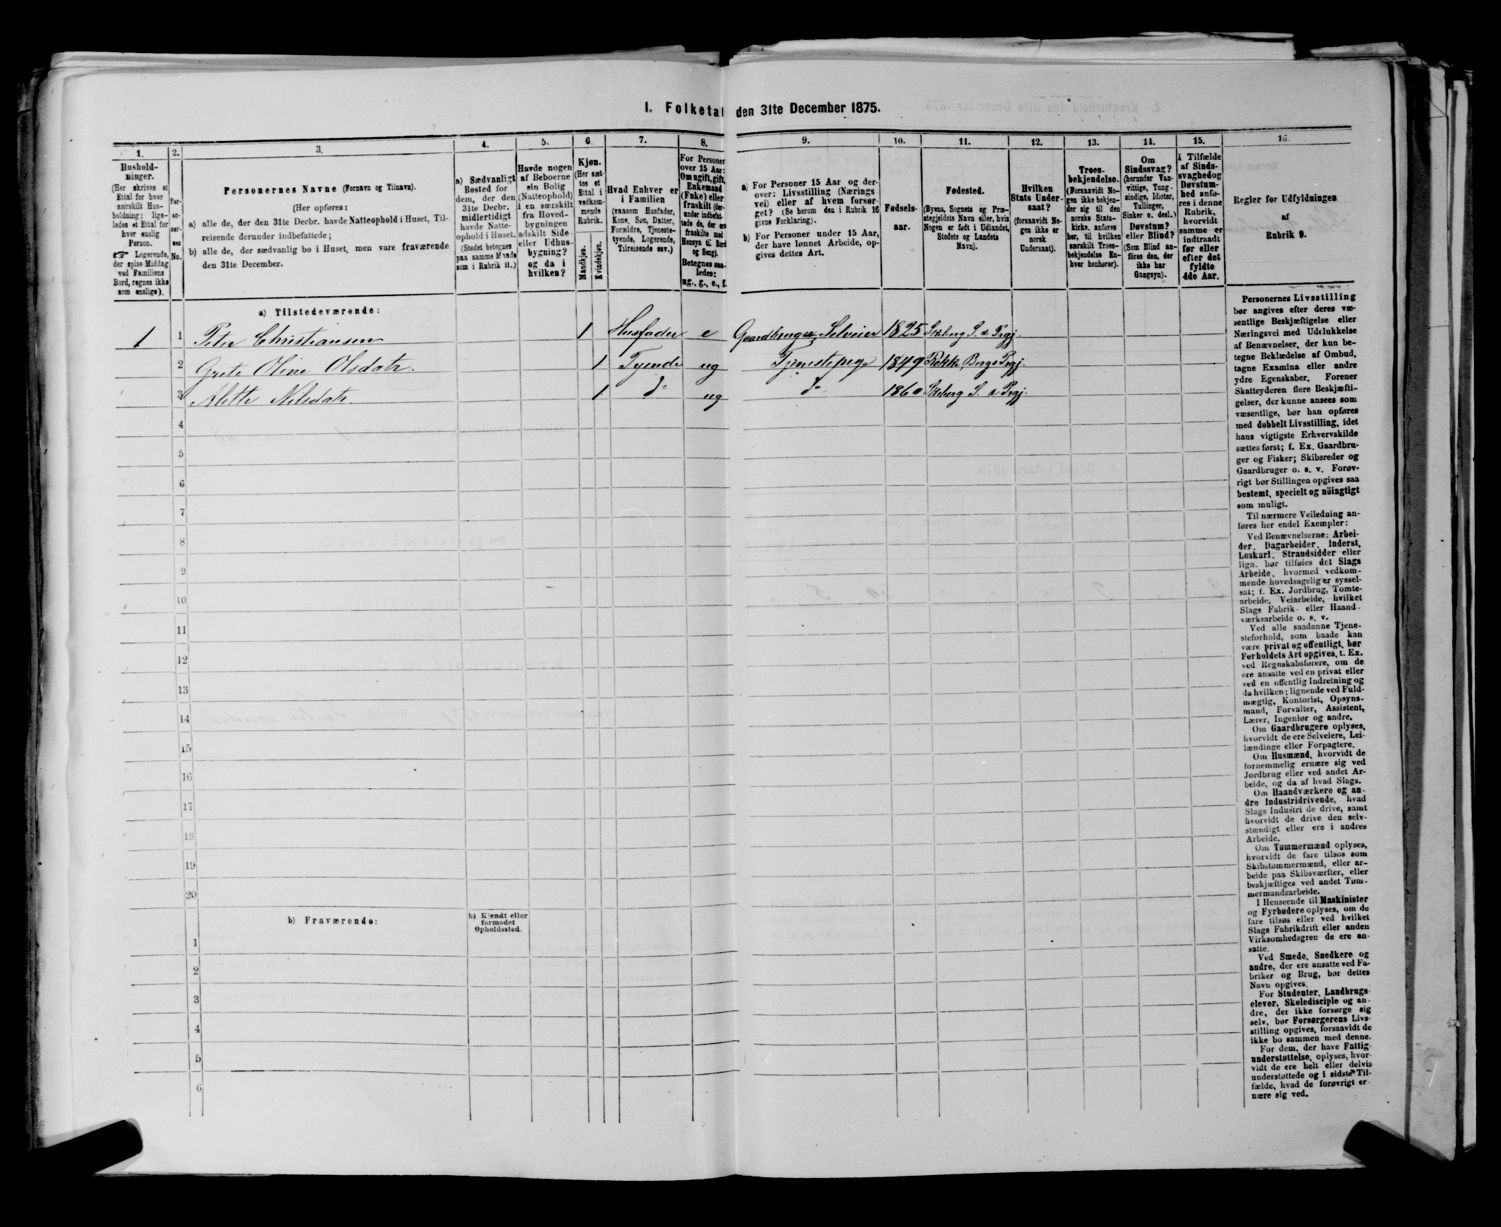 I. Folketal den 31te December 1875.
1.
Hushold-
ninger.
(Her skrives et
Ettal for hver
særskilt Hus-
holdning; lige-
ledes et Ettal for
hver enslig
Person.
☞ Logerende,
der spise Middag
ved Familiens
Bord, regnes ikke
som enslige).
2.
Per-
so-
ner-
nes
No.
3.
Personernes Navne (Fornavn og Tilnavn).
(Her opføres:
a) alle de, der den 31te Decbr. havde Natteophold i Huset, Til-
reisende derunder indbefattede;
b) alle de, der sædvanlig bo i Huset, men vare fraværende
den 31te December.
4.
a) Sædvanligt
Bosted for
dem, der den
31te Decbr.
midlertidigt
havde Natte-
ophold i Huset.
(Stedet betegnes
paa samme Maade
som i Rubrik 11.)
5.
Havde nogen
af Beboerne
sin Bolig
(Natteophold)
i en særskilt
fra Hoved-
bygningen
adskilt Side-
eller Udhus-
bygning?
og da i
hvilken?
6.
Kjøn.
(Her sæt-
tes et
Ettal i
vedkom-
mende
Rubrik.
Mandkjøn.
Kvindekjøn.
7.
Hvad Enhver er
i Familien
(saasom Husfader,
Kone, Søn, Datter,
Forældre, Tjeneste-
tyende, Logerende,
Tilreisende osv.)
8.
For Personer
over 15 Aar:
Om ugift, gift,
Enkemand
(Enke) eller
fraskilt (der-
under indbefat-
tede de, der ere
fraskilte med
Hensyn til Bord
og Seng).
Betegnes saa-
ledes:
ug., g., e., f.
9.
a) For Personer 15 Aar og der-
over: Livsstilling (Nærings-
vei) eller af hvem forsør-
get? (Se herom den i Rubrik 16
givne Forklaring).
b) For Personer under 15 Aar,
der have lønnet Arbeide, op-
gives dettes Art.
10.
Fødsels-
aar.
11.
Fødested.
(Byens, Sognets og Præ-
stegjeldets Navn eller, hvis
Nogen er født i Udlandet,
Stedets og Landets
Navn).
12.
Hvilken
Stats Under-
saat?
(forsaavidt No-
gen ikke er
norsk
Undersaat).
13.
Troes-
bekjendelse.
(Forsaavidt No-
gen ikke bekjen-
der sig til den
norske Stats-
kirke, anføres
her, til hvilken
særskilt Troes-
bekjendelse En-
hver henhører).
14.
Om
Sindssvag?
(herunder Van-
vittige, Tung-
sindige, Idioter,
Tullinger,
Sinker o. desl.)
Døvstum?
eller Blind?
(Som Blind an-
føres den, der
ikke har
Gangsyn).
15.
I Tilfælde
af Sinds-
svaghed og
Døvstum-
hed anfø-
res i denne
Rubrik,
hvorvidt
samme er
indtraadt
før eller
efter det
fyldte
4de Aar.
16.
Regler for Udfyldningen
af
Rubrik 9.
a) Tilstedeværende:
1 1 Peter Christiansen 1 Husfader e Gaardbruger, Selveier 1825 Skiberg S. & Prgj.
2 Grete Oline Olsdatr. 1 Tyende ug Tjenestepige 1849 Rokke Berg Prgj.
3 Mette Nilsdatr. 1 Do ug Do 1860 Skiberg S. & Prgj.
4
5
6
7
8
9
10
11
12
13
14
15
16
17
18
19
20
b) Fraværende:
b) Kjendt eller
formodet
Opholdssted.
1
2
3
4
5
6
Personernes Livsstilling
bør angives efter deres væ-
sentlige Beskjæftigelse eller
Næringsvei med Udelukkelse
af Benævnelser, der kun be-
tegne Beklædelse af Ombud,
tagne Examina eller andre
ydre Egenskaber. Forener
Skatteyderen flere Beskjæfti-
gelser, der kunne ansees som
væsentlige, bør han opføres
med dobbelt Livsstilling, idet
hans vigtigste Erhvervskilde
sættes først; f. Ex. Gaardbru-
ger og Fisker; Skibsreder og
Gaardbruger o. s. v. Forøv-
rigt bør Stillingen opgives saa
bestemt, specielt og nøiagtigt
som muligt.
Til nærmere Veiledning an-
føres her endel Exempler:
Ved Benævnelserne: Arbei-
der, Dagarbeider, Inderst,
Løskarl, Strandsidder eller
lign. bør tilføies det Slags
Arbeide, hvormed vedkom-
mende hovedsagelig er syssel-
sat; f. Ex. Jordbrug, Tomte-
arbeide, Veiarbeide, hvilket
Slags Fabrik- eller Haand-
værksarbeide o. s. v.
Ved alle saadanne Tjene-
steforhold, som baade kan
være privat og offentligt, bør
Forholdets Art opgives, t. Ex.
ved Regnskabsførere, om de
ere ansatte ved en privat eller
ved en offentlig Indretning og
da hvilken; lignende ved Fuld-
mægtig, Kontorist, Opsyns-
mand, Forvalter, Assistent,
Lærer, Ingeniør og andre.
Om Gaardbrugere oplyses,
hvorvidt de ere Selveiere, Lei-
lændinge eller Forpagtere.
Om Husmænd, hvorvidt de
fornemmelig ernære sig ved
Jordbrug eller ved andet Ar-
beide, og da af hvad Slags.
Om Haandværkere og an-
dre Industridrivende, hvad
Slags Industri de drive, samt
hvorvidt de drive den selv-
stændigt eller ere i andres
Arbeide.
Om Tømmermænd oplyses,
hvorvidt de fare tilsøs som
Skibstømmermænd, eller ar-
beide paa Skibsværfter, eller
beskjæftiges ved andet Tøm-
mermandsarbeide.
I Henseende til Maskinister
og Fyrbødere oplyses, om de
fare tilsøs eller ved hvilket
Slags Fabrikdrift eller anden
Virksomhedsgren de ere an-
satte.
Ved Smede, Snedkere og
andre, der ere ansatte ved Fa-
briker og Brug, bør dettes
Navn opgives.
For Studenter, Landbrugs-
elever, Skoledisciple og an-
dre, der ikke forsørge sig
selv, bør Forsørgerens Livs-
stilling opgives, forsaavidt de
ikke bo sammen med denne.
For dem, der have Fattig-
understøttelse, oplyses, hvor-
vidt de ere helt eller delvis
understøttede og i sidste Til-
fælde, hvad de forøvrigt er-
nære sig ved.